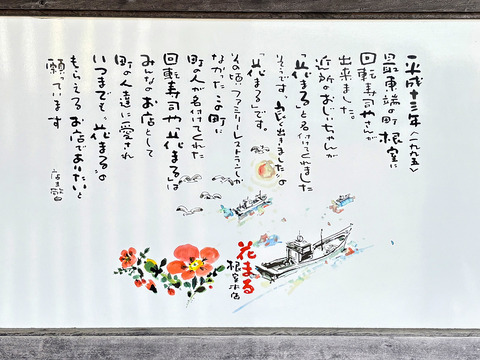 平成十三年(一九九五)
最東端の町根室に
回転寿司やさんが
出来ました。
近所のおじいちゃんが
「花まる」と名付けてくれました
そうです、良く出きました。の
「花まる」です。
その頃、ファミリーレストランしか
なかったこの町に
町の人が名付けてくれた
回転寿司や“花まる”は
みんなのお店として
町の人達に愛され
いつまでも“花まる”の
もらえるお店でありたいと
願っています
花まる
根室本店